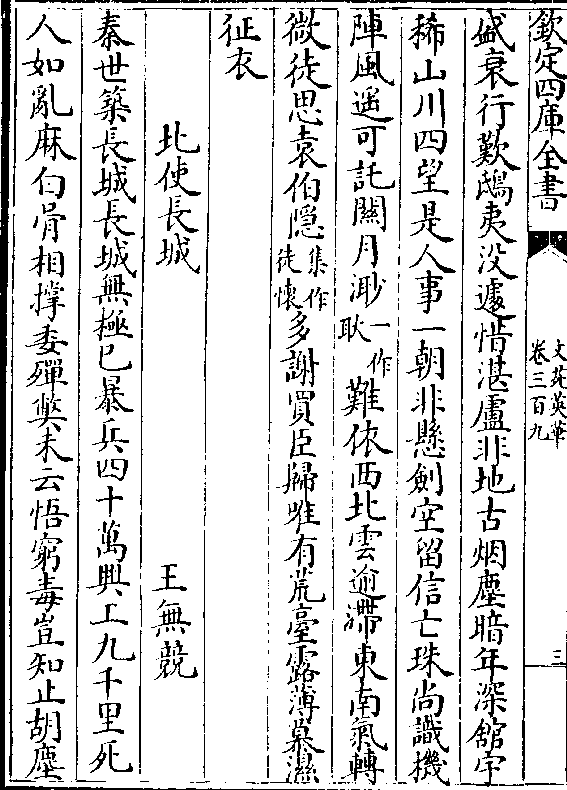 欽定四庫全書
文苑英華
卷三百九
三
盛衰行歎鴟夷没遽惜湛盧非地古烟塵暗年深舘宇
稀山川四望是人事一朝非懸劍空留信亡珠尚識機
陣風遥可託關月渺一作耿難依西北雲逾滯東南氣轉
微徒思袁伯隠集作徒懷多謝買臣歸唯有荒臺露薄暮濕
征衣
北使長城
王無競
秦世築長城長城無極已暴兵四十萬興工九千里死
人如亂麻白骨相撑委殫獘未云悟窮毒豈知止胡塵